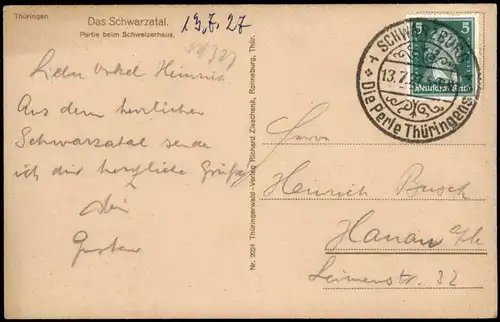 Thüringen
Das Schwarzatal.
Partie beim Schweizerhaus.
13.7.27
Lieber Onkel Heinrich
Aus dem herrlichen
Schwarzatal sende
ich dir herzliche Grüße
Dein
Gustav
Nr. 2024 Thüringerwald-Verlag Richard Zieschank, Ronneburg, Thür.
SCHWARZBURG
13.7.27
Die Perle Thüringens
5 5
Deutsches Reich
Herrn
Heinrich Busch
Hanau a/M
Leimenstr. 32